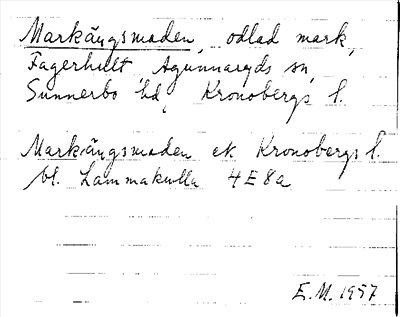 Markängsmaden, odlad mark,
Fagerhult, Agunnaryds sn,
Sunnerbo hd, Kronobergs l.
Markängsmaden ek Kronobergs l.
bl. Lammakulla 4E8a
E.M. 1957